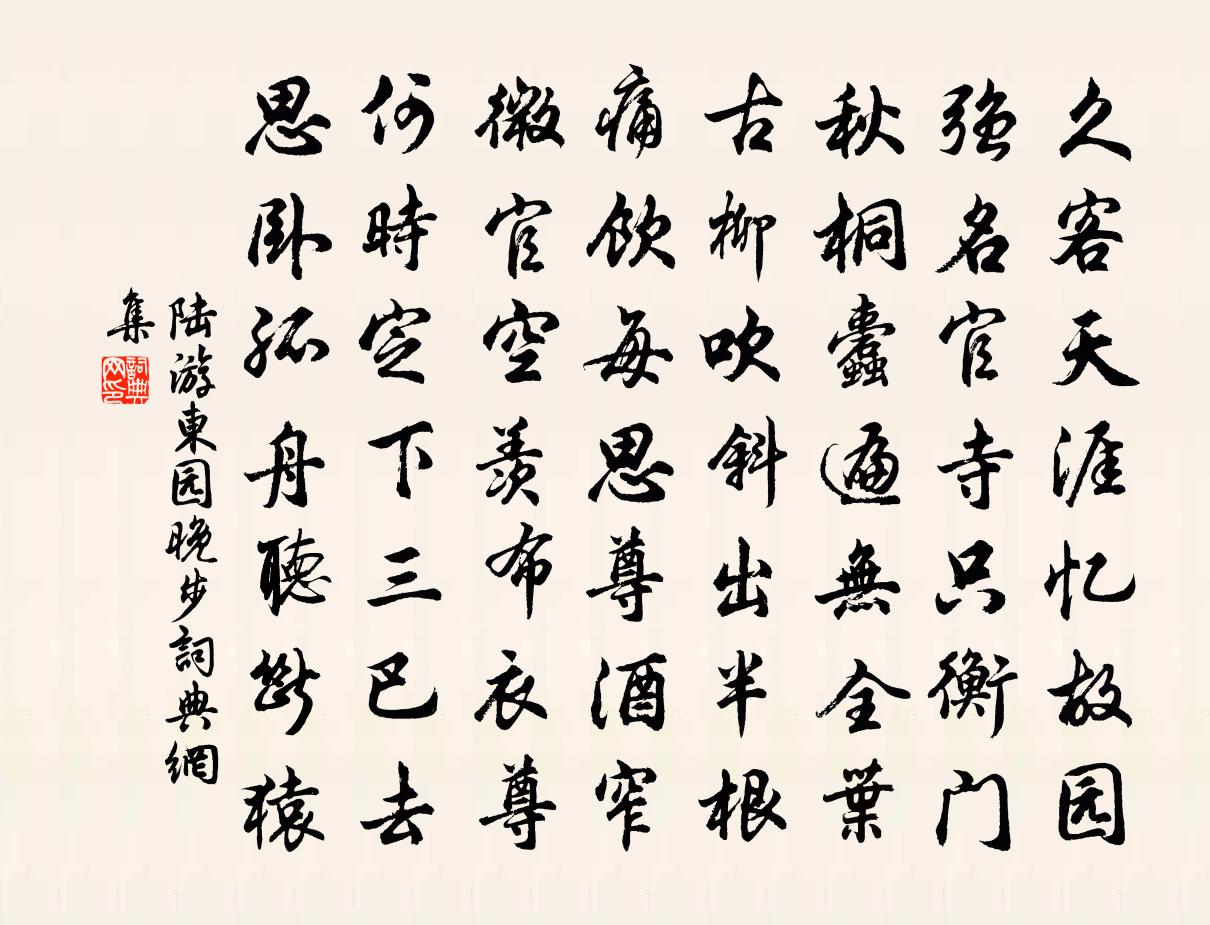 久客天涯忆故园
强名官寺只衡门
秋桐蠹遍無全葉
古柳吹斜出半根
痛飲每思尊酒窄
微官空羨布衣尊
何時定下三巴去
思卧孤舟聽斷猿
陸游東园晚步詞典網
集
詞典网印